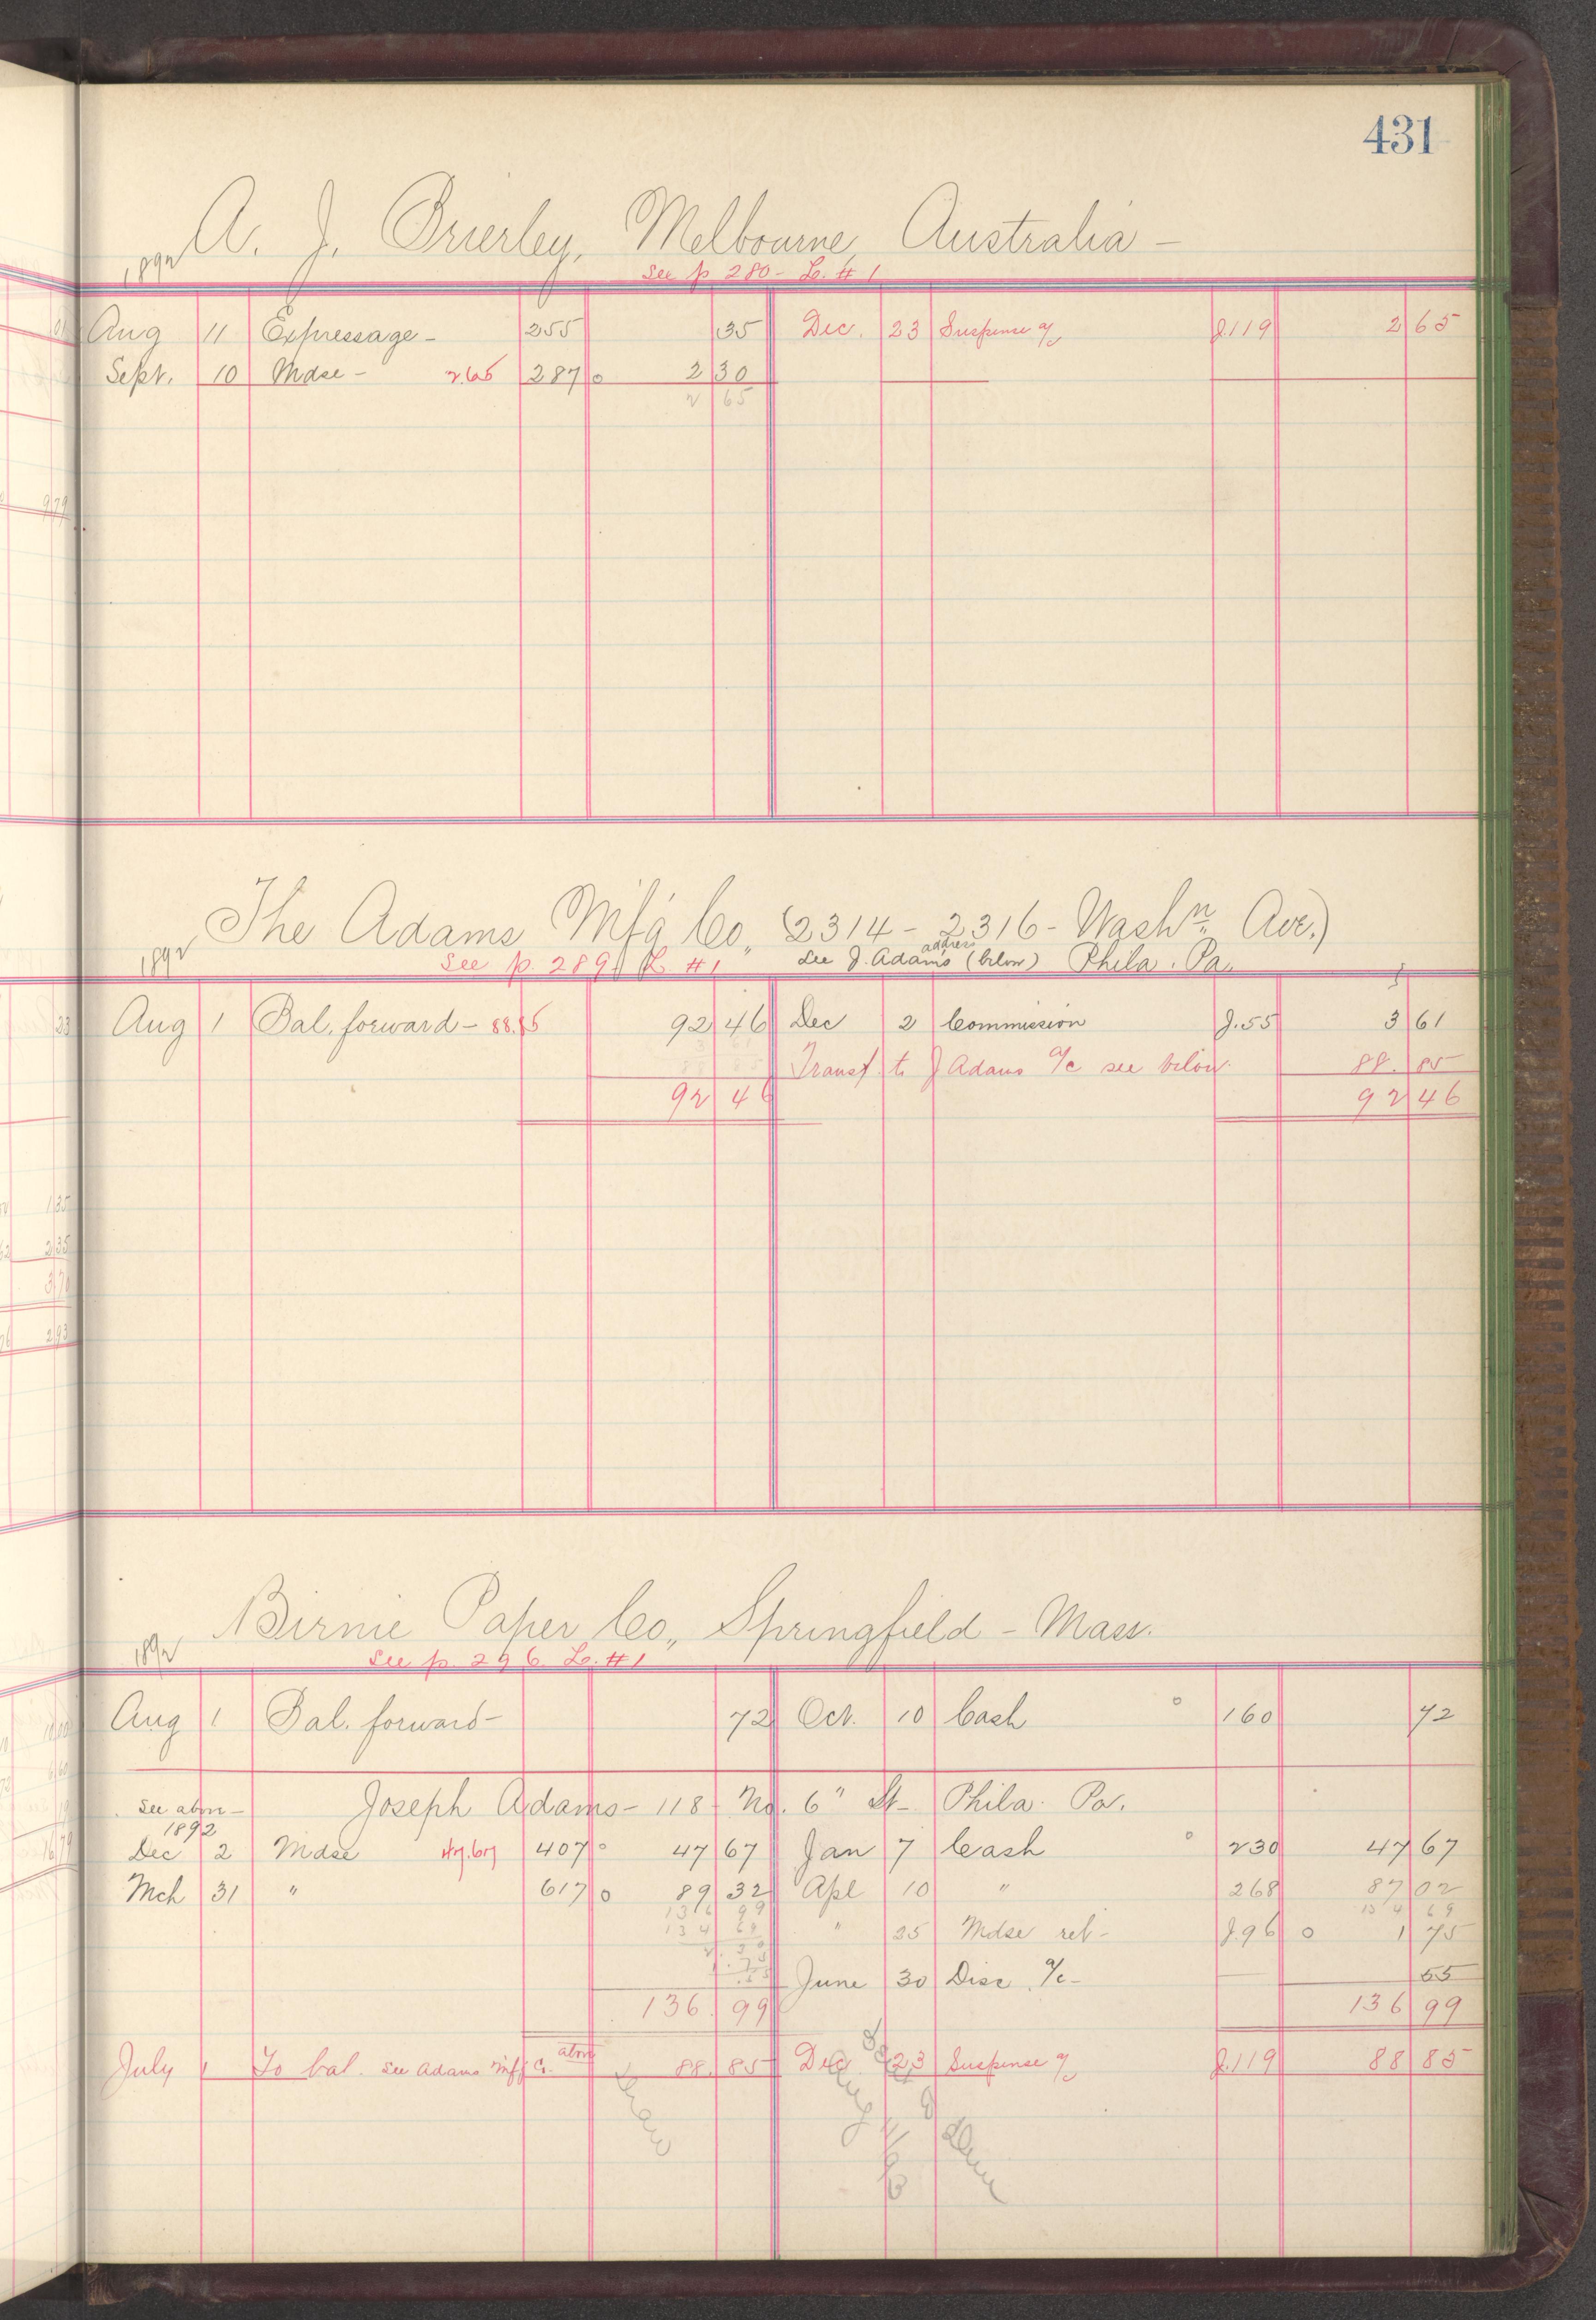 431
A. J. Brierley, Melbourne, Australia –
1892
See p 280 – L. # 1
Aug 11 Expressage – 255 35 Dec. 23 Suspense a/c J.119 2 65
Sept. 10 Mdse – 2.65 287 0 2 30
2 65
The Adams M'f'g Co., (2314 – 2316 – Wash'n Ave.)
1892 See p. 289 L. #1 See J. Adams address (below) Phila. Pa.
Aug 1 Bal. forward – 88.85 92 46 Dec 2 Commission J.55 3 61
Transf. to J Adams a/c see below. 88. 85
92 46 92 46
Birnie Paper Co., Springfield – Mass.
1892
See p. 296. L. #1
Aug 1 Bal. forward – 72 Oct. 10 Cash 160 72
See above – Joseph Adams – 118 No. 6" St – Phila. Pa.
1892
Dec 2 Mdse 47.67 407 47 67 Jan 7 Cash 230 47 67
Mch 31 " 617 0 89 32 Apl 10 " 268 87 02
136 99 134 69
134 69 " 25 Mdse ret – J.96 0 1 75
2.30
1.75
.55 June 30 Disc. a/c – 55
136. 99 136 99
July 1 To bal. see Adams M'f'g Co. above 88. 85 Dec 23 Suspense a/c J.119 88 85